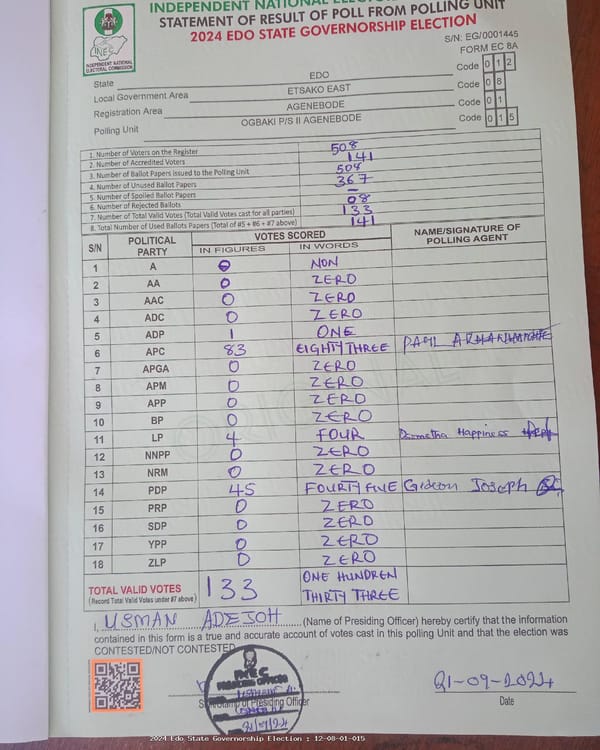 INDEPENDENT NATIONAL
STATEMENT OF RESULT OF POLL FROM POLLING UNIT
2024 EDO STATE GOVERNORSHIP ELECTION
INEC
INDEPENDENT NATIONAL
ELECTORAL COMMISSION
S/N: EG/0001445
FORM EC 8A
State EDO Code 0 1 2
Local Government Area ETSAKO EAST Code 0 8
Registration Area AGENEBODE Code 0 1
Polling Unit OGBAKI P/S II AGENEBODE Code 0 1 5
1. Number of Voters on the Register 508
2. Number of Accredited Voters 141
3. Number of Ballot Papers issued to the Polling Unit 508
4. Number of Unused Ballot Papers 367
5. Number of Spoiled Ballot Papers —
6. Number of Rejected Ballots 08
7. Number of Total Valid Votes (Total Valid Votes cast for all parties) 133
8. Total Number of Used Ballots Papers (Total of #5 + #6 + #7 above) 141
S/N POLITICAL PARTY VOTES SCORED NAME/SIGNATURE OF POLLING AGENT
IN FIGURES IN WORDS
1 A 0 NON
2 AA 0 ZERO
3 AAC 0 ZERO
4 ADC 0 ZERO
5 ADP 1 ONE
6 APC 83 EIGHTY THREE PAUL
7 APGA 0 ZERO
8 APM 0 ZERO
9 APP 0 ZERO
10 BP 0 ZERO
11 LP 4 FOUR Happiness
12 NNPP 0 ZERO
13 NRM 0 ZERO
14 PDP 45 FOURTY FIVE Gideon Joseph
15 PRP 0 ZERO
16 SDP 0 ZERO
17 YPP 0 ZERO
18 ZLP 0 ZERO
TOTAL VALID VOTES 133 ONE HUNDREN
(Record Total Valid Votes under #7 above) THIRTY THREE
I, USMAN ADEJOH (Name of Presiding Officer) hereby certify that the information
contained in this form is a true and accurate account of votes cast in this polling Unit and that the election was
CONTESTED/NOT CONTESTED
INEC
PRESIDING OFFICER
21-09-2024
Presiding Officer Date
2024 Edo State Governorship Election : 12-08-01-015